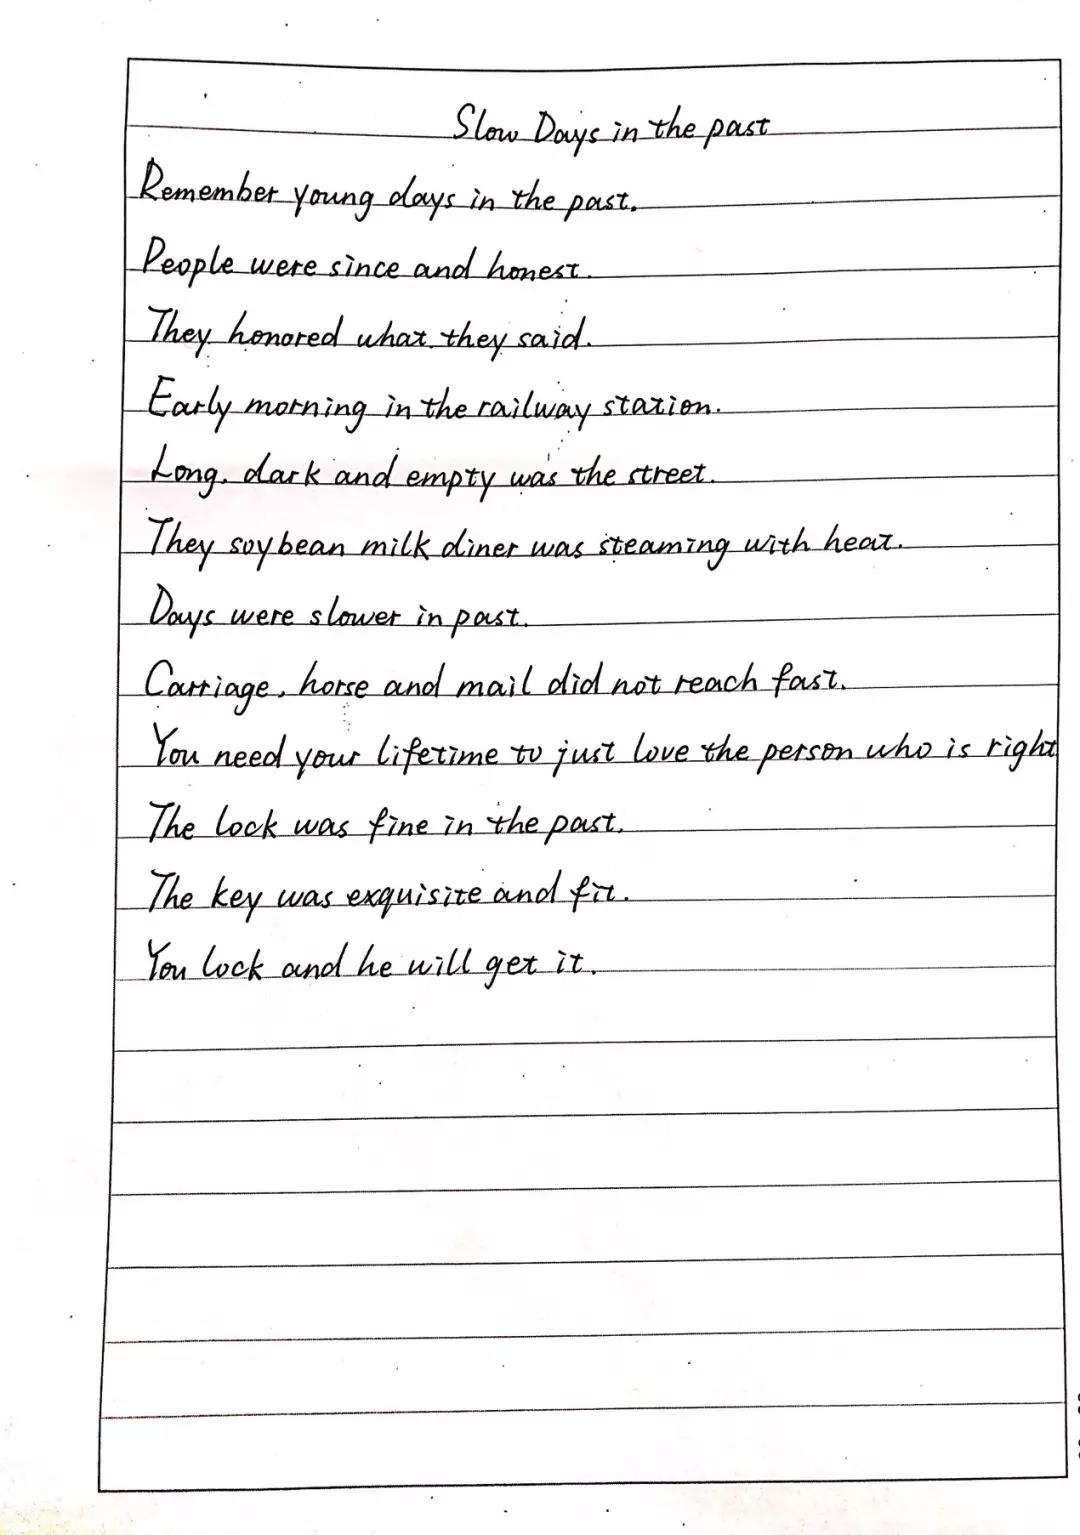 Slow Days in the past
Remember young days in the past.
People were since and honest.
They honored what they said.
Early morning in the railway station.
Long, dark and empty was the street.
They soybean milk diner was steaming with heat.
Days were slower in past.
Carriage, horse and mail did not reach fast.
You need your lifetime to just love the person who is right
The lock was fine in the past.
The key was exquisite and fit.
You lock and he will get it.